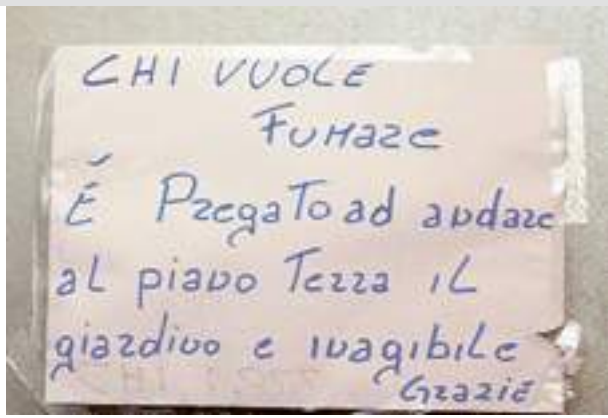 CHI VUOLE
FUMARE
É PregaTo ad andare
al piano Terra il
giardino e inagibile
Grazie